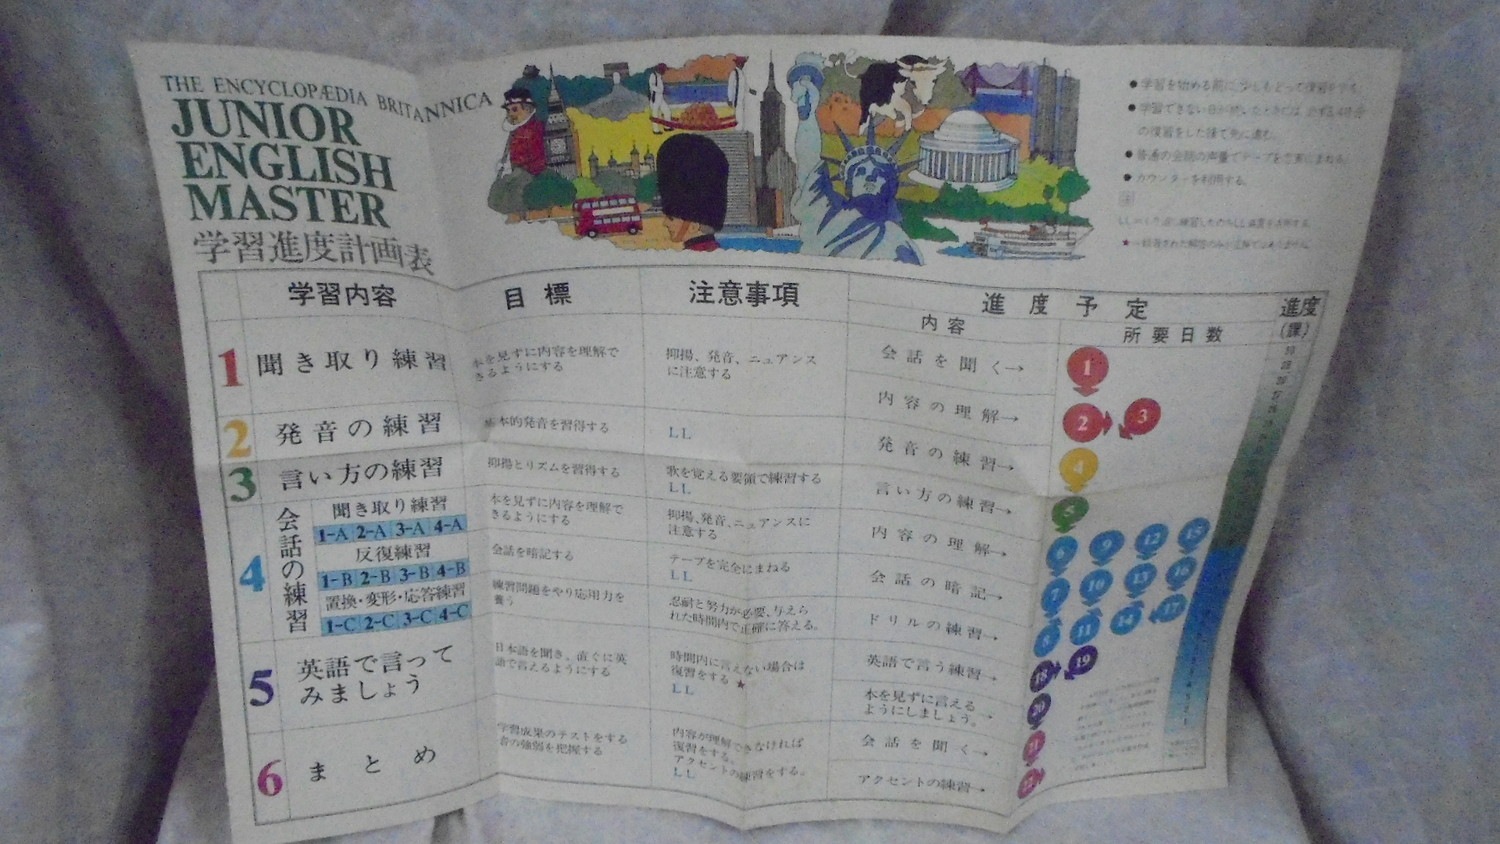 THE ENCYCLOPÆDIA BRITANNICA
JUNIOR
ENGLISH
MASTER
学習進度計画表
●学習を始める前に少しもどって復習
●学習できない日が続いたときには
の復習をした後で先に進む。
●普通の会話の声量でテープを まねる。
●カウンターを利用する。
学習内容
目標
注意事項
進度予定
進度
(課)
内容
所要日数
1 聞き取り練習
本を見ずに内容を理解で
きるようにする
抑揚、発音、ニュアンス
に注意する
会話を聞く→
1
内容の理解→
2 3
2 発音の練習
基本的発音を習得する
LL
発音の練習→
4
3 言い方の練習
抑揚とリズムを習得する
歌を覚える要領で練習する
LL
言い方の練習→
5
4 会話の練習
聞き取り練習
1-A 2-A 3-A 4-A
本を見ずに内容を理解で
きるようにする
抑揚、発音、ニュアンスに
注意する
内容の理解→
6 9 12 15
反復練習
1-B 2-B 3-B 4-B
会話を暗記する
テープを完全にまねる
LL
会話の暗記→
7 10 13 16
置換・変形・応答練習
1-C 2-C 3-C 4-C
練習問題をやり応用力を
養う
忍耐と努力が必要、与えら
れた時間内で正確に答える。
ドリルの練習→
8 11 14 17
5 英語で言って
みましょう
日本語を聞き、直ぐに英
語で言えるようにする
時間内に言えない場合は
復習をする ★
LL
英語で言う練習→
18 19
本を見ずに言える
ようにしましょう。→
20
6 まとめ
学習成果のテストをする
音の強弱を把握する
内容が理解できなければ
復習をする。
アクセントの練習をする。
LL
会話を聞く→
21
アクセントの練習→
22